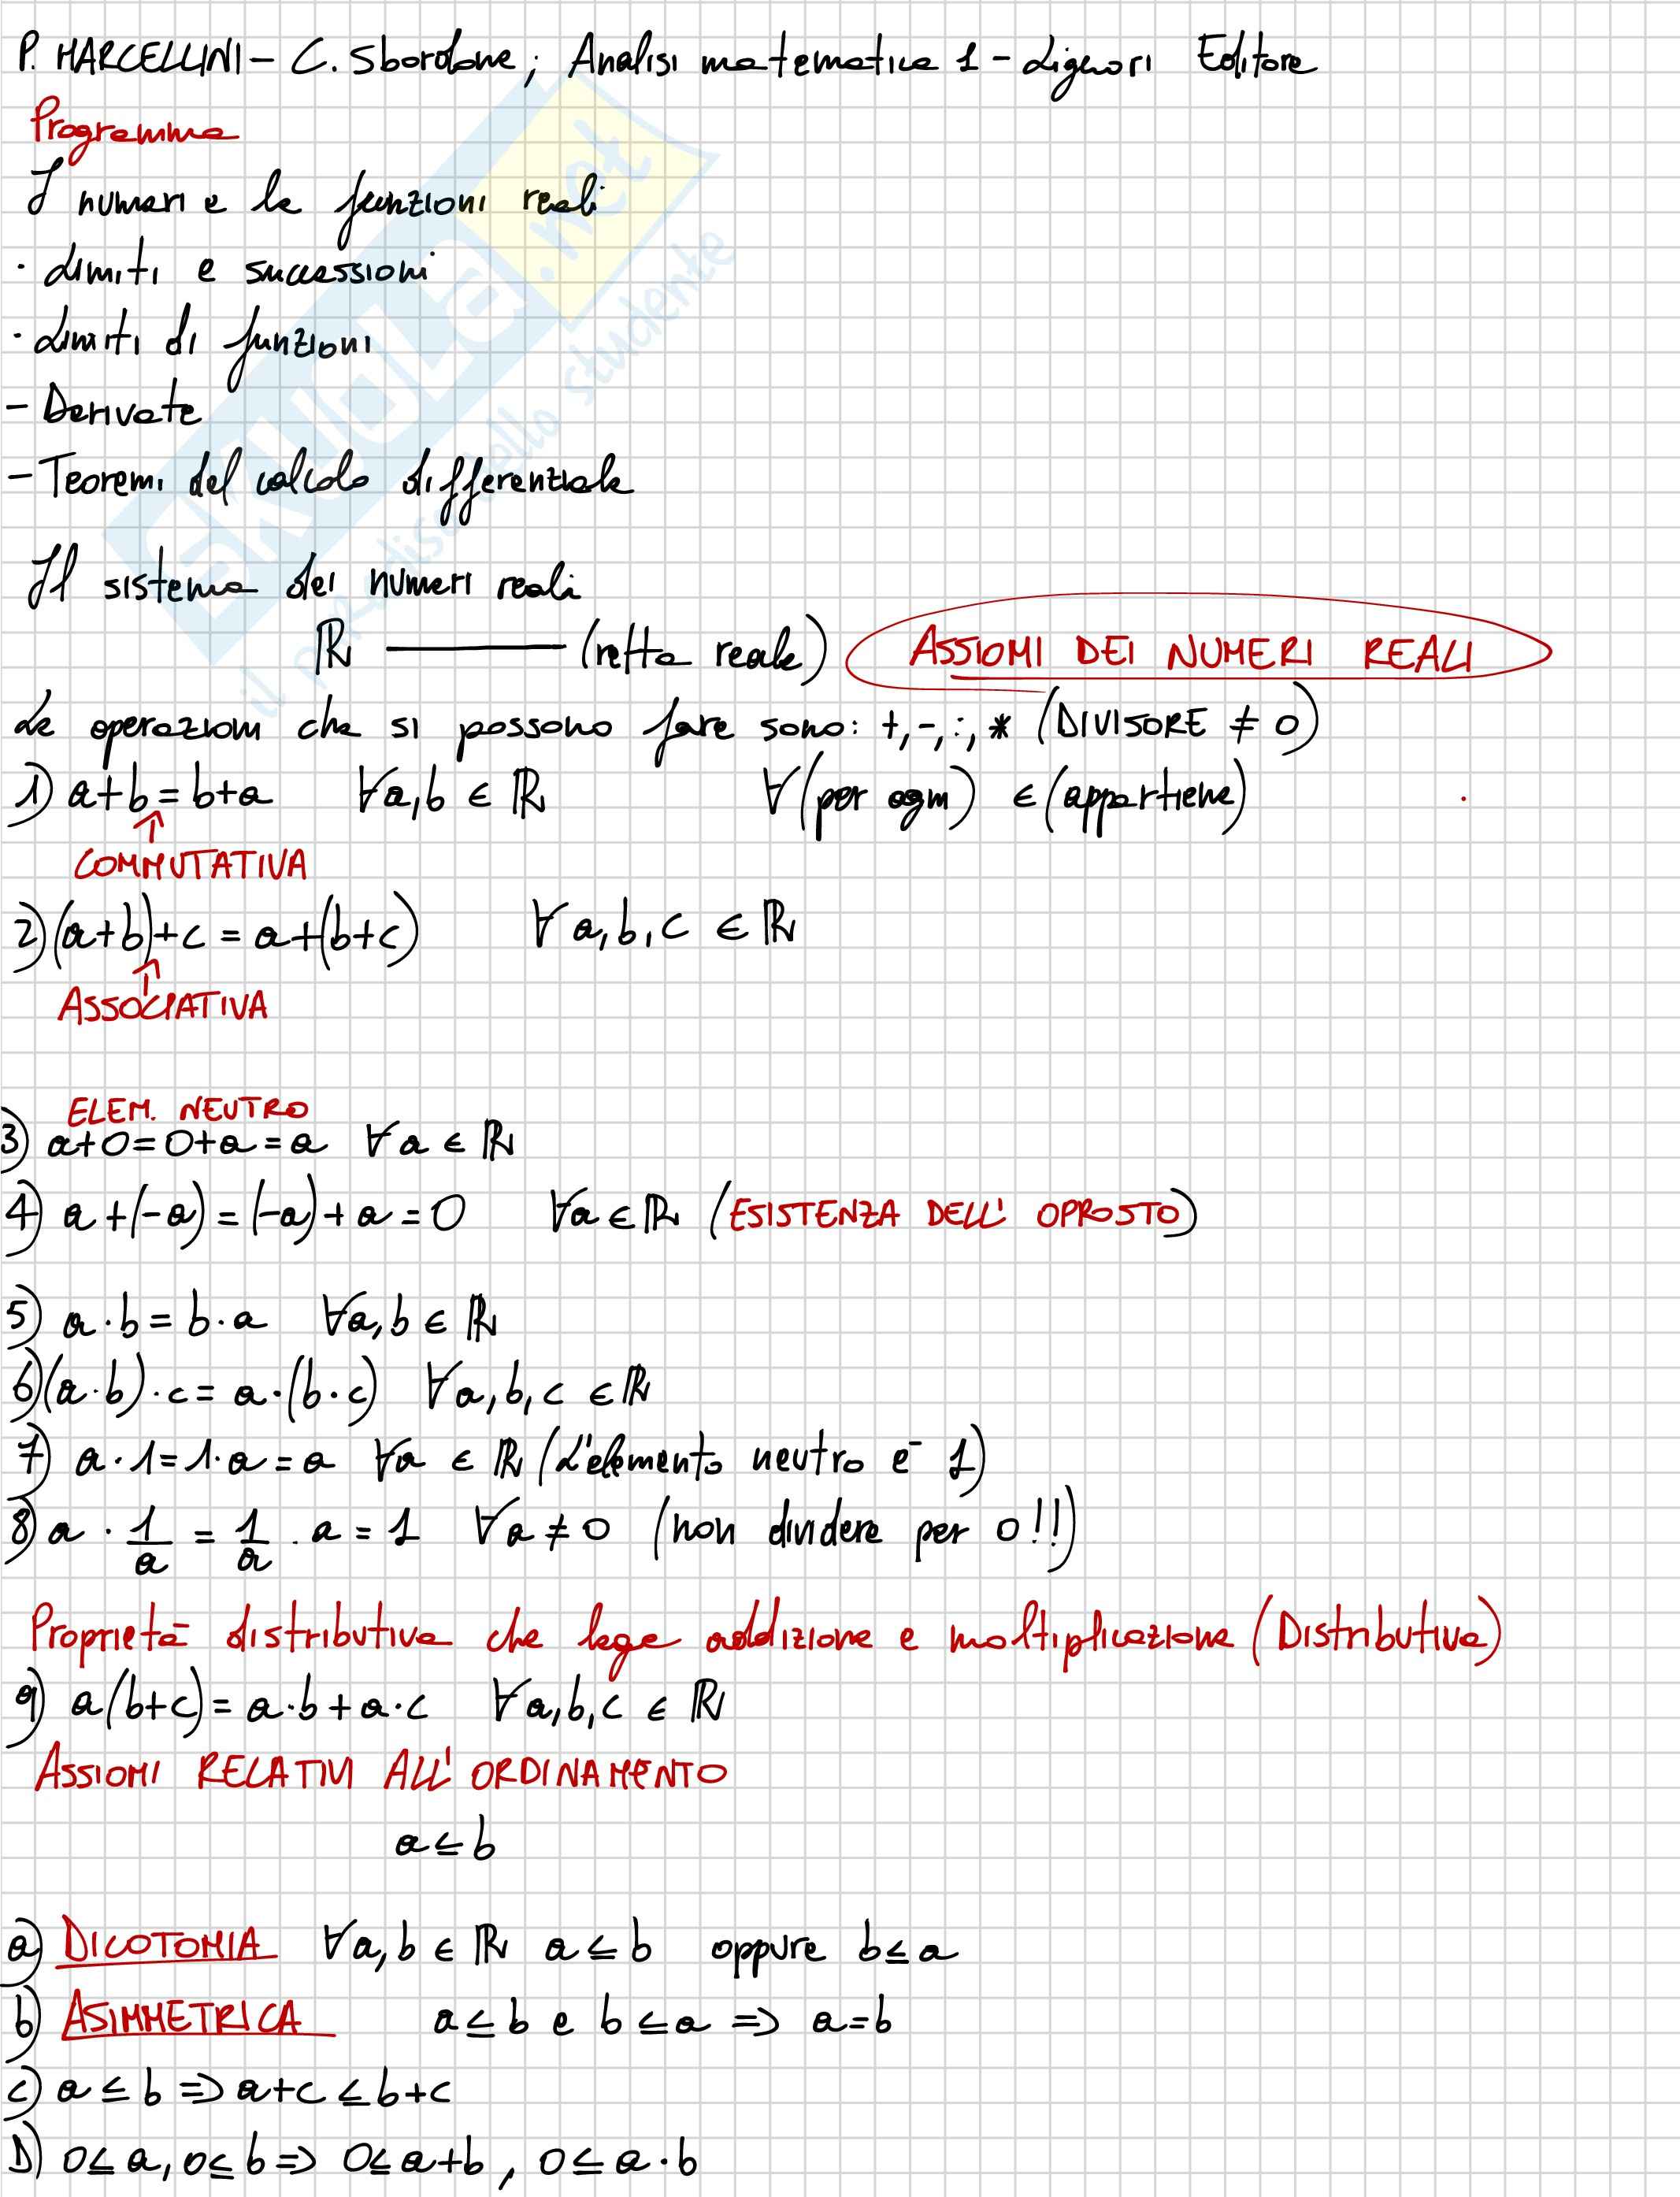 P. MARCELLINI - C. Sbordone; Analisi matematica 1 - Liguori Editore
Programma
I numeri e le funzioni reali
· Limiti e successioni
· Limiti di funzioni
- Derivate
- Teoremi del calcolo differenziale
Il sistema dei numeri reali
ℝ ——— (retta reale) ASSIOMI DEI NUMERI REALI
Le operazioni che si possono fare sono: +, -, :, * (DIVISORE ≠ 0)
1) a+b = b+a ∀a,b ∈ ℝ ∀(per ogni) ∈(appartiene)
↑
COMMUTATIVA
2) (a+b)+c = a+(b+c) ∀ a,b,c ∈ ℝ
↑
ASSOCIATIVA
ELEM. NEUTRO
3) a+0=0+a=a ∀a ∈ ℝ
4) a+(-a)=(-a)+a=0 ∀a∈ℝ (ESISTENZA DELL' OPPOSTO)
5) a·b = b·a ∀a,b ∈ ℝ
6) (a·b)·c = a·(b·c) ∀a,b,c ∈ℝ
7) a·1=1·a=a ∀a ∈ ℝ (L'elemento neutro è 1)
8) a · 1/a = 1/a · a = 1 ∀a≠0 (non dividere per 0!!)
Proprietà distributiva che lega addizione e moltiplicazione (Distributiva)
9) a(b+c)= a·b+a·c ∀a,b,c ∈ ℝ
ASSIOMI RELATIVI ALL' ORDINAMENTO
a≤b
a) DICOTOMIA ∀a,b ∈ ℝ a≤b oppure b≤a
b) ASIMMETRICA a≤b e b≤a => a=b
c) a≤b => a+c ≤ b+c
D) 0≤a, 0≤b => 0≤a+b, 0≤a·b
SKUOLA.net
il paradiso dello studente